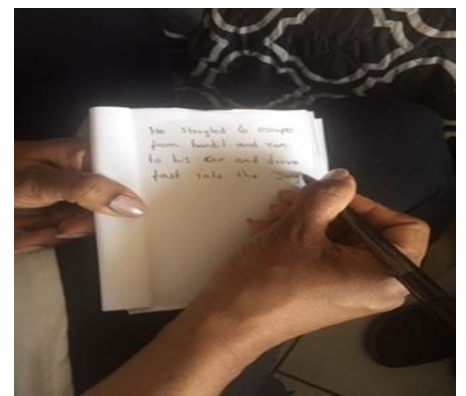 He strugled to escape
from bandit and ran
to his car and drove
fast into the